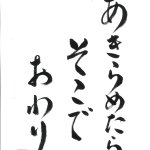 あきらめたら
そこで
おわり